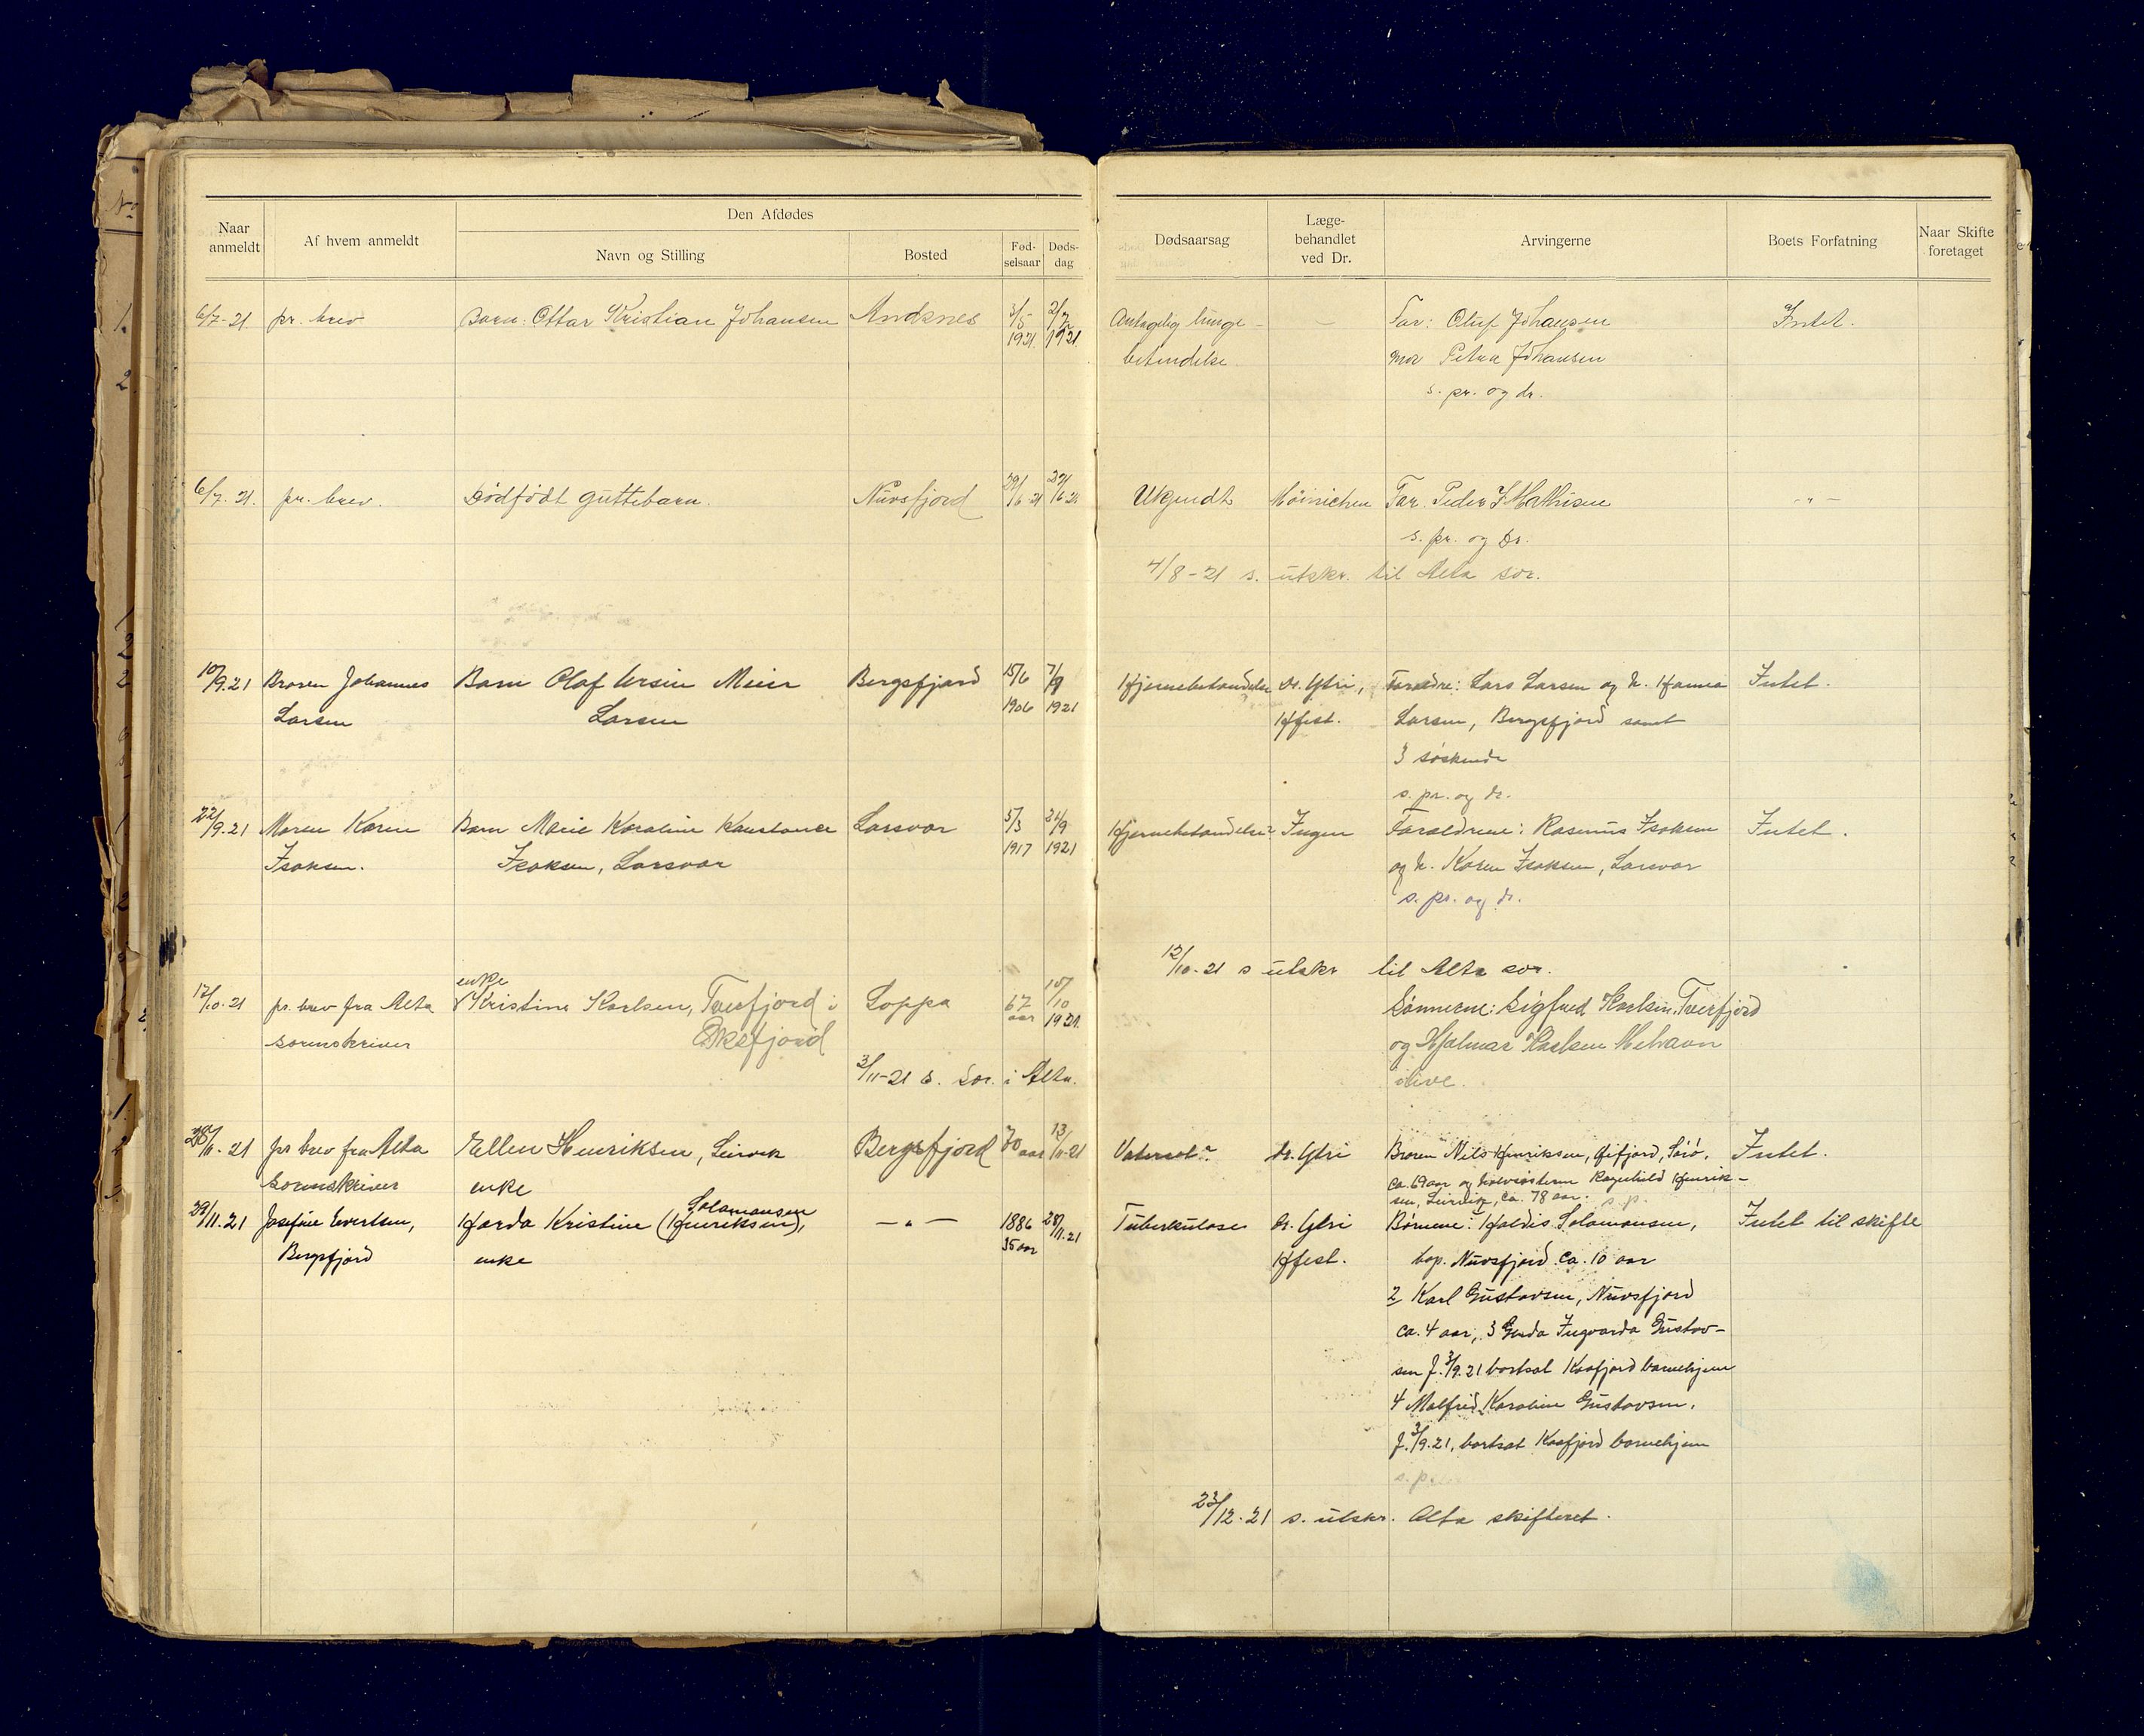 Naar anmeldt
Af hvem anmeldt
Den Afdødes
Navn og Stilling
Bosted
Fød-selsaar
Døds-dag
Dødsaarsag
Læge-behandlet ved Dr.
Arvingerne
Boets Forfatning
Naar Skifte foretaget
6/7-21 pr. brev Barn: Ottar Kristian Johansen Andsnes 3/5 1921. 2/7 1921. Antagelig lunge- — Far: Oluf Johansen Intet.
betendelse. mor Petra Johansen
s. pr. og dr.
6/7. 21. pr. brev. Dødfødt guttebarn. Nuvsfjord 29/6 21 29/6 21 Ukjendt Far. Peder J Mathisen - " -
s. pr. og Dr.
4/8-21 s. utskr. til Alta sor.
10/9.21 Broren Johannes Barn Olaf Meier Bergsfjord 15/6 7/9 Hjernebetændelse Dr. Ytri, Forældre: Lars Larsen og h. Hanna Intet.
Larsen Larsen 1906 1921 Hfest. Larsen, Bergsfjord samt
3 søskende
s. pr. og dr.
22/9.21 Moren Karen Barn Marie Karoline Konstanse Larsvar 5/3 21/9 Hjernebetændelse? Ingen Forældrene: Rasmus Isaksen Intet.
Isaksen. Isaksen, Larsvar 1917 1921 og h. Karen Isaksen, Larsvar
s. pr. og dr.
12/10-21 s utskr til Alta sor.
enke
12/10-21 pr. brev fra Alta Kristine Karlsen, Tverfjord i Loppa 67 aar 10/10 1921. Sønnerne: Sigfred Karlsen, Tverfjord
sorenskriver Øksfjord og Hjalmar Karlsen Mehavn
ilive.
3/11-21 s. Sor. i Alta.
28/11-21 pr brev fra Alta Ellen Henriksen, Leirvik Bergsfjord 70 aar 13/11-21 Vatersot? Dr. Ytri Broren Nils Henriksen, Sørø, Intet.
sorenskriver enke ca. 69 aar og halvsøsteren Ragnhild Henrik-
sen, Leirvik, ca. 78 aar. s. p.
Salamonsen
29/11.21 Josefine Evertsen, Harda Kristine (Henriksen), — " — 1886 28/11.21 Tuberkulose Dr. Ytri Børnene: 1 Haldis Salamonsen, Intet til skifte
Bergsfjord enke 35 aar Hfest. bop. Nuvsfjord ca. 10 aar
2 Karl Gustavsen, Nuvsfjord
ca. 4 aar, 3 Gerda Ingvarda Gustav-
sen f. 3/9.21 bortsat Kaafjord barnehjem
4 Malfrid Karoline Gustavsen,
f. 3/9.21, bortsat Kaafjord barnehjem
s. p.
23/12.21 s. utskr. Alta skifteret.